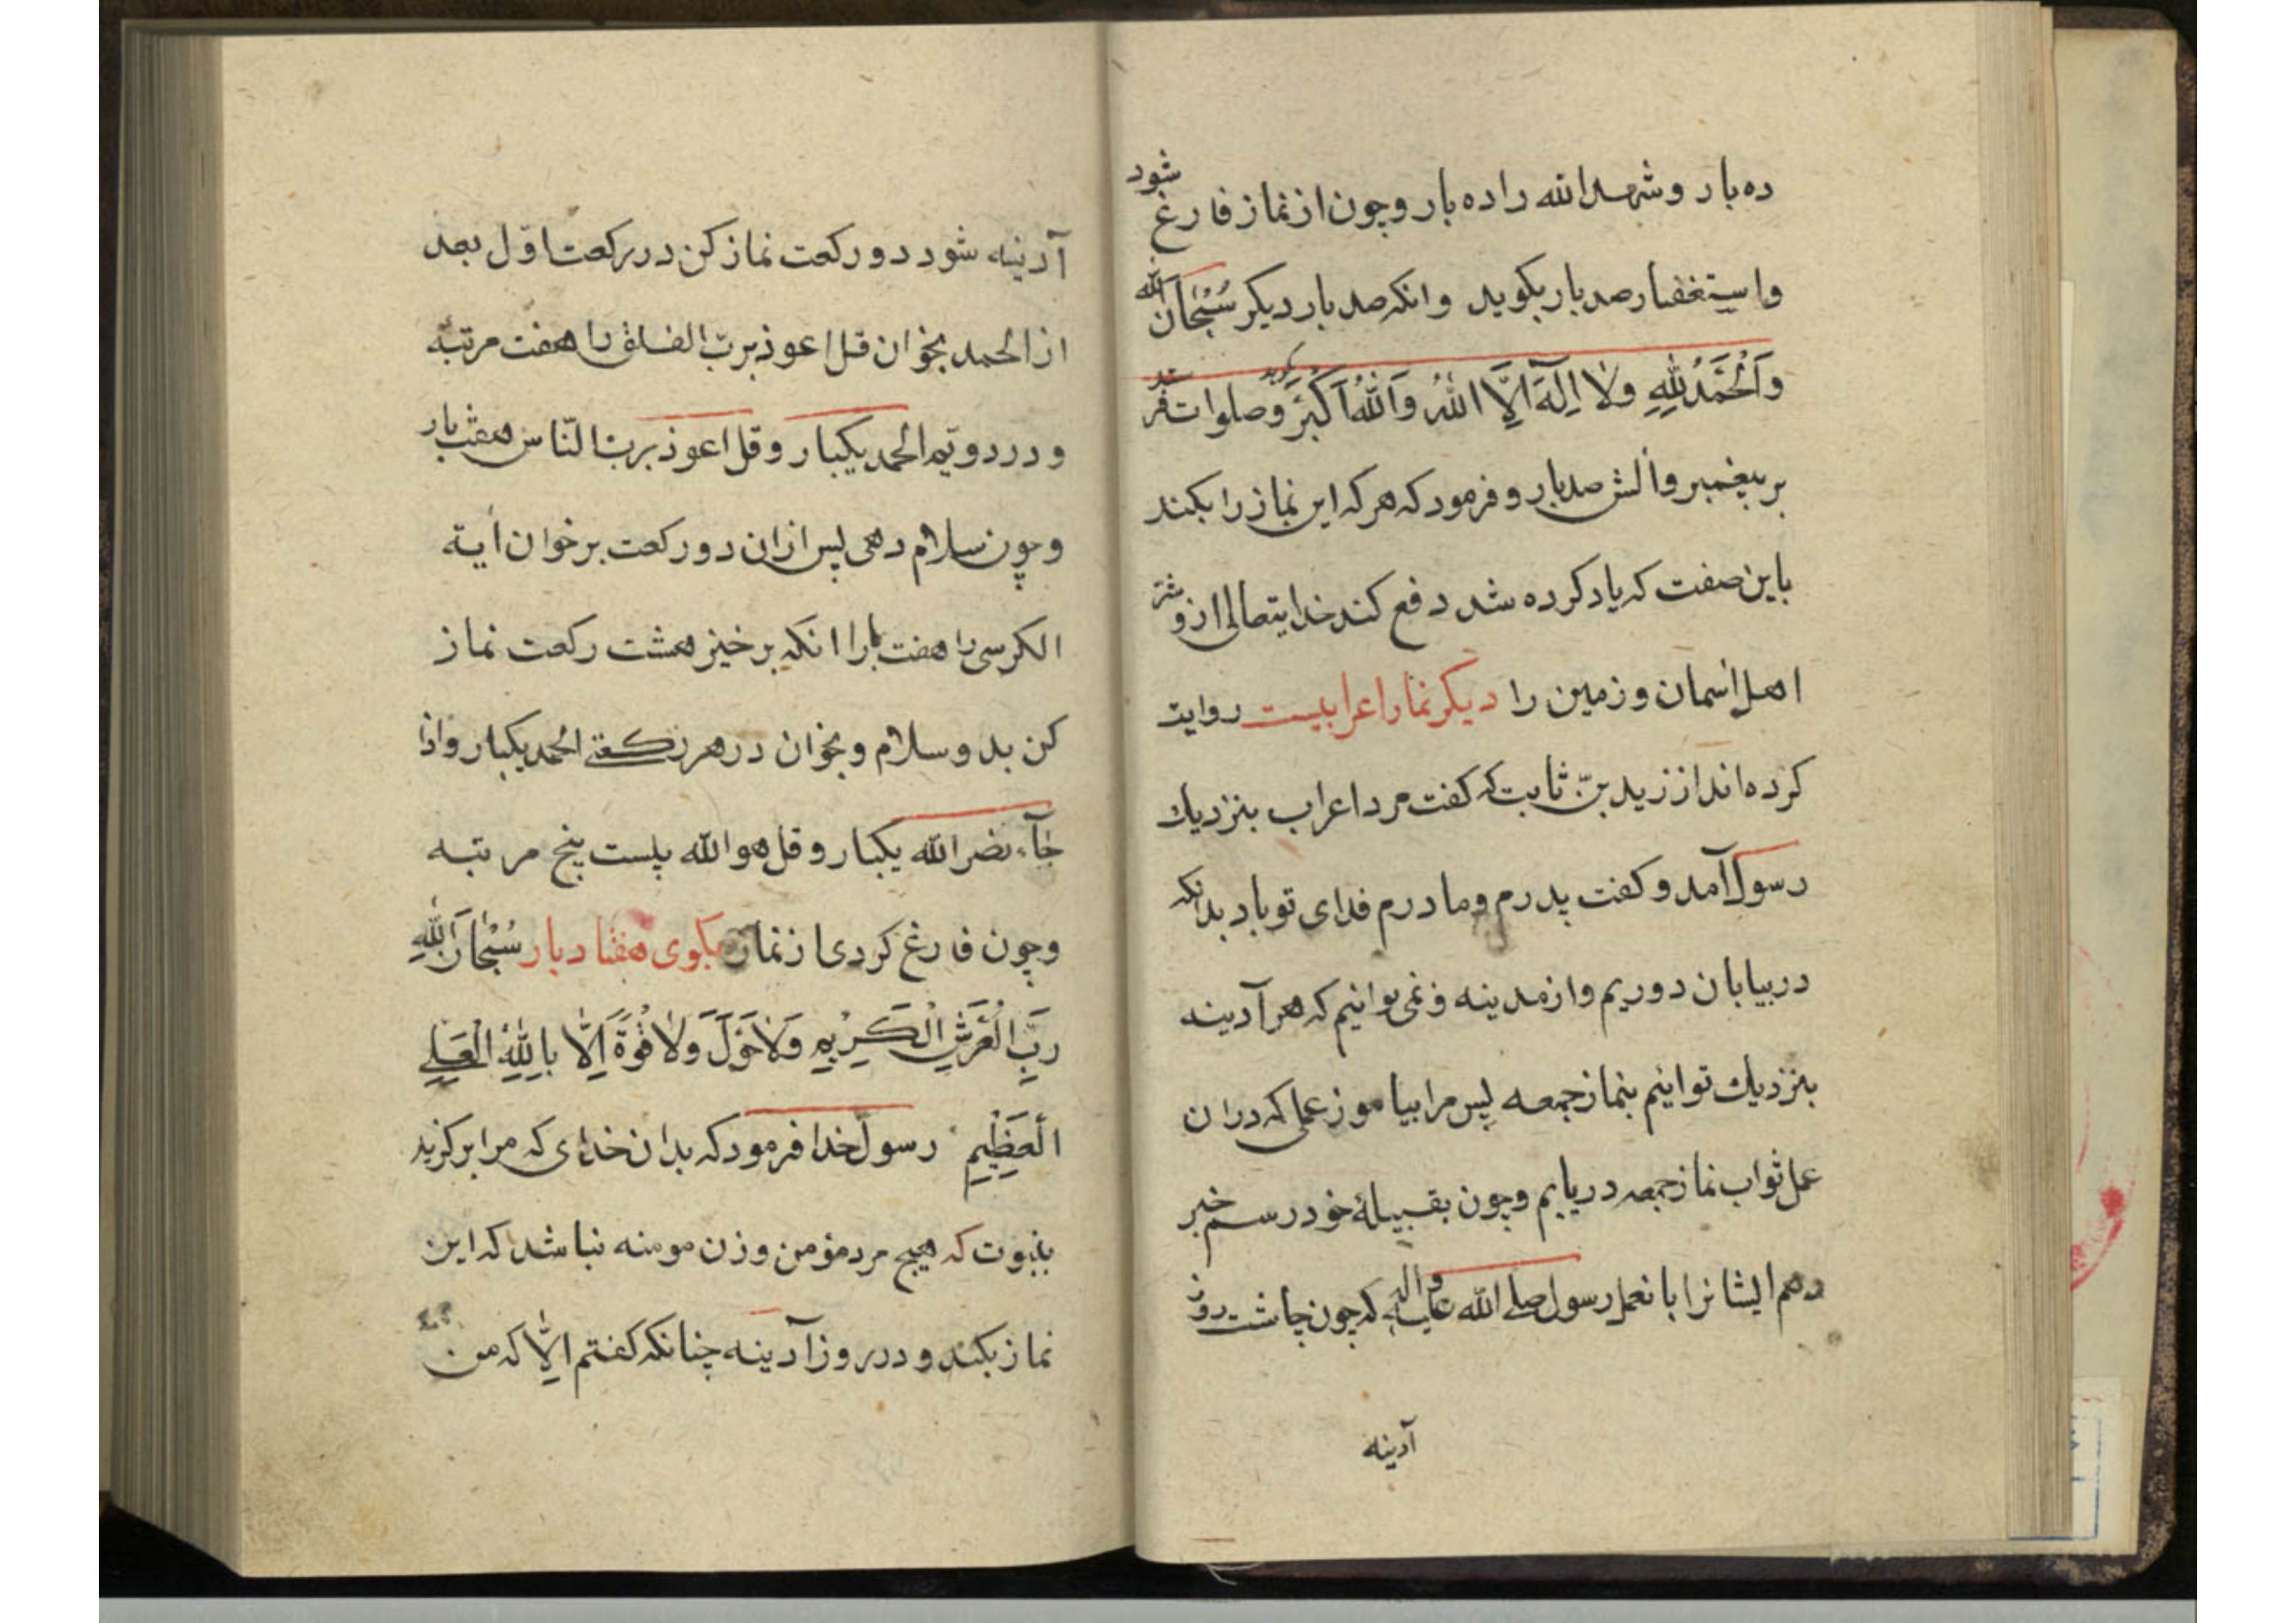 ده بار و شهد الله را ده بار و چون از نماز فارغ شود
واستغفار صد بار بکوید وانکه صد بار دیکر سُبْحَانَ الله
وَالْحَمْدُ لِلّٰهِ وَلَا اِلٰهَ اِلَّا اللّٰهُ وَاللّٰهُ اَکْبَرُ بکوید و صلوات فرستد
بر پیغمبر و آلش صد بار و فرمود که هر که این نماز را بکند
باین صفت که یاد کرده شد دفع کند خدایتعالی ازو شر
اهل اسمان و زمین را دیکر نماز اعرابیست روایت
کرده اند از زید بن ثابت که کفت مرد اعراب بنزدیك
رسول آمد و کفت پدرم و مادرم فدای تو باد بدانکه
در بیابان دوریم و از مدینه و نمی توانیم که هر آدینه
بنزدیك تو اییم بنماز جمعه پس مرا بیاموز عملی که دران
عمل ثواب نماز جمعه دریابم و چون بقبیلهٔ خود رسم خبر
دهم ایشانرا بانعمل رسول صلی الله علیه واله که چون چاشت روز
آدینه
آدینه شود دو رکعت نماز کن در رکعت اوّل بعد
از الحمد بخوان قل اعوذ بربّ الفلق را هفت مرتبه
و در دویّم الحمد یکبار و قل اعوذ بربّ النّاس هفت بار
و چون سلام دهی پس ازان دو رکعت بر خوان آیة
الکرسی را هفت بار انکه بر خیز هشت رکعت نماز
کن بدو سلام و بخوان در هر رکعتی الحمد یکبار و اذا
جآء نصر الله یکبار و قل هو الله بیست پنج مرتبه
و چون فارغ کردی از نماز بکوی هفتاد بار سُبْحَانَ اللّٰهِ
رَبِّ الْعَرْشِ الْکَرِیْمِ وَلَا حَوْلَ وَلَا قُوَّةَ اِلَّا بِاللّٰهِ الْعَلِیِّ
الْعَظِیْمِ رسول خدا فرمود که بدان خدای که مرا برکزید
بنبوت که هیچ مرد مؤمن و زن مومنه نباشد که این
نماز بکند و در روز آدینه چنانکه کفتم الّا که من